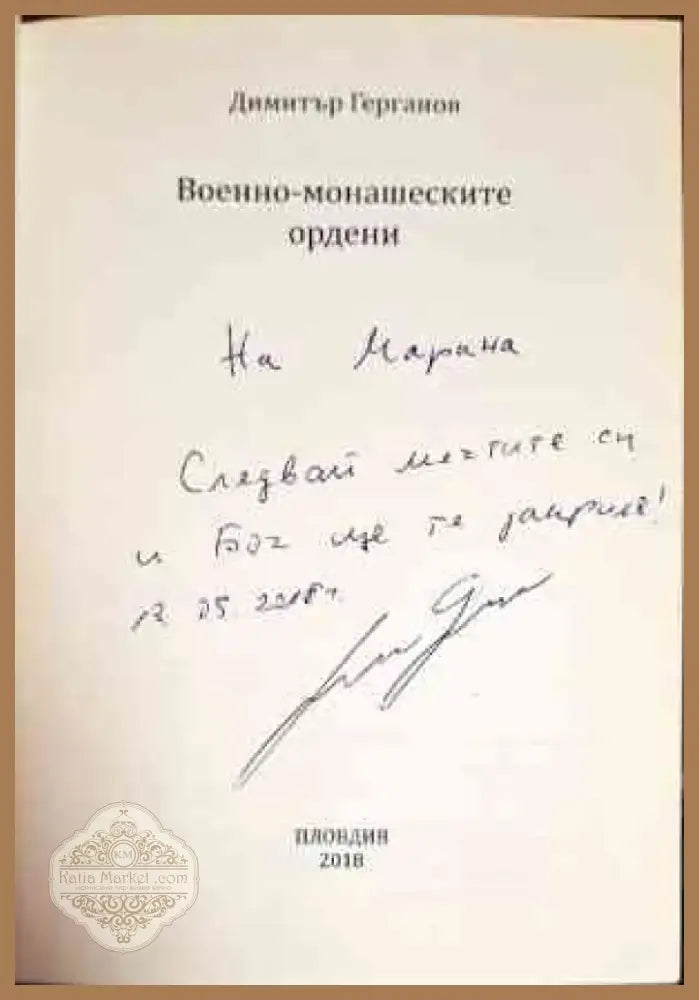 Димитър Герганов
Военно-монашеските
ордени
На Марина
Следвай мечтите си
и Бог ще те закриля!
05. 2018 г.
ПЛОВДИВ
2018
KM
Katia Market .com